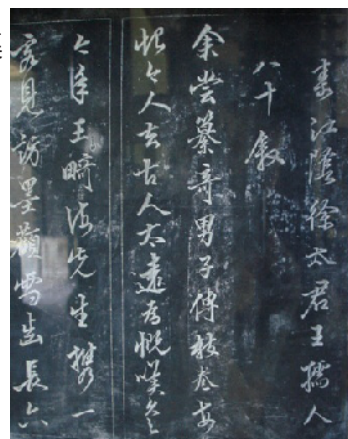 壽江陰徐太君王孺人
八十敘
余嘗纂奇男子傳數卷每
恨今人去古人太遠為慨嘆久
今年王畸海先生攜一
客見訪墨顴雪齒長六